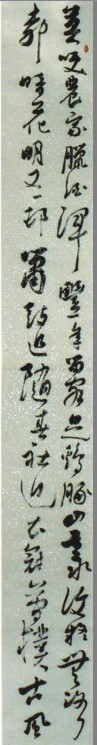 莫笑農家臘酒渾豐年留客足鷄豚山重水複疑無路
柳暗花明又一邨簫鼓追隨春社近衣冠簡樸古風